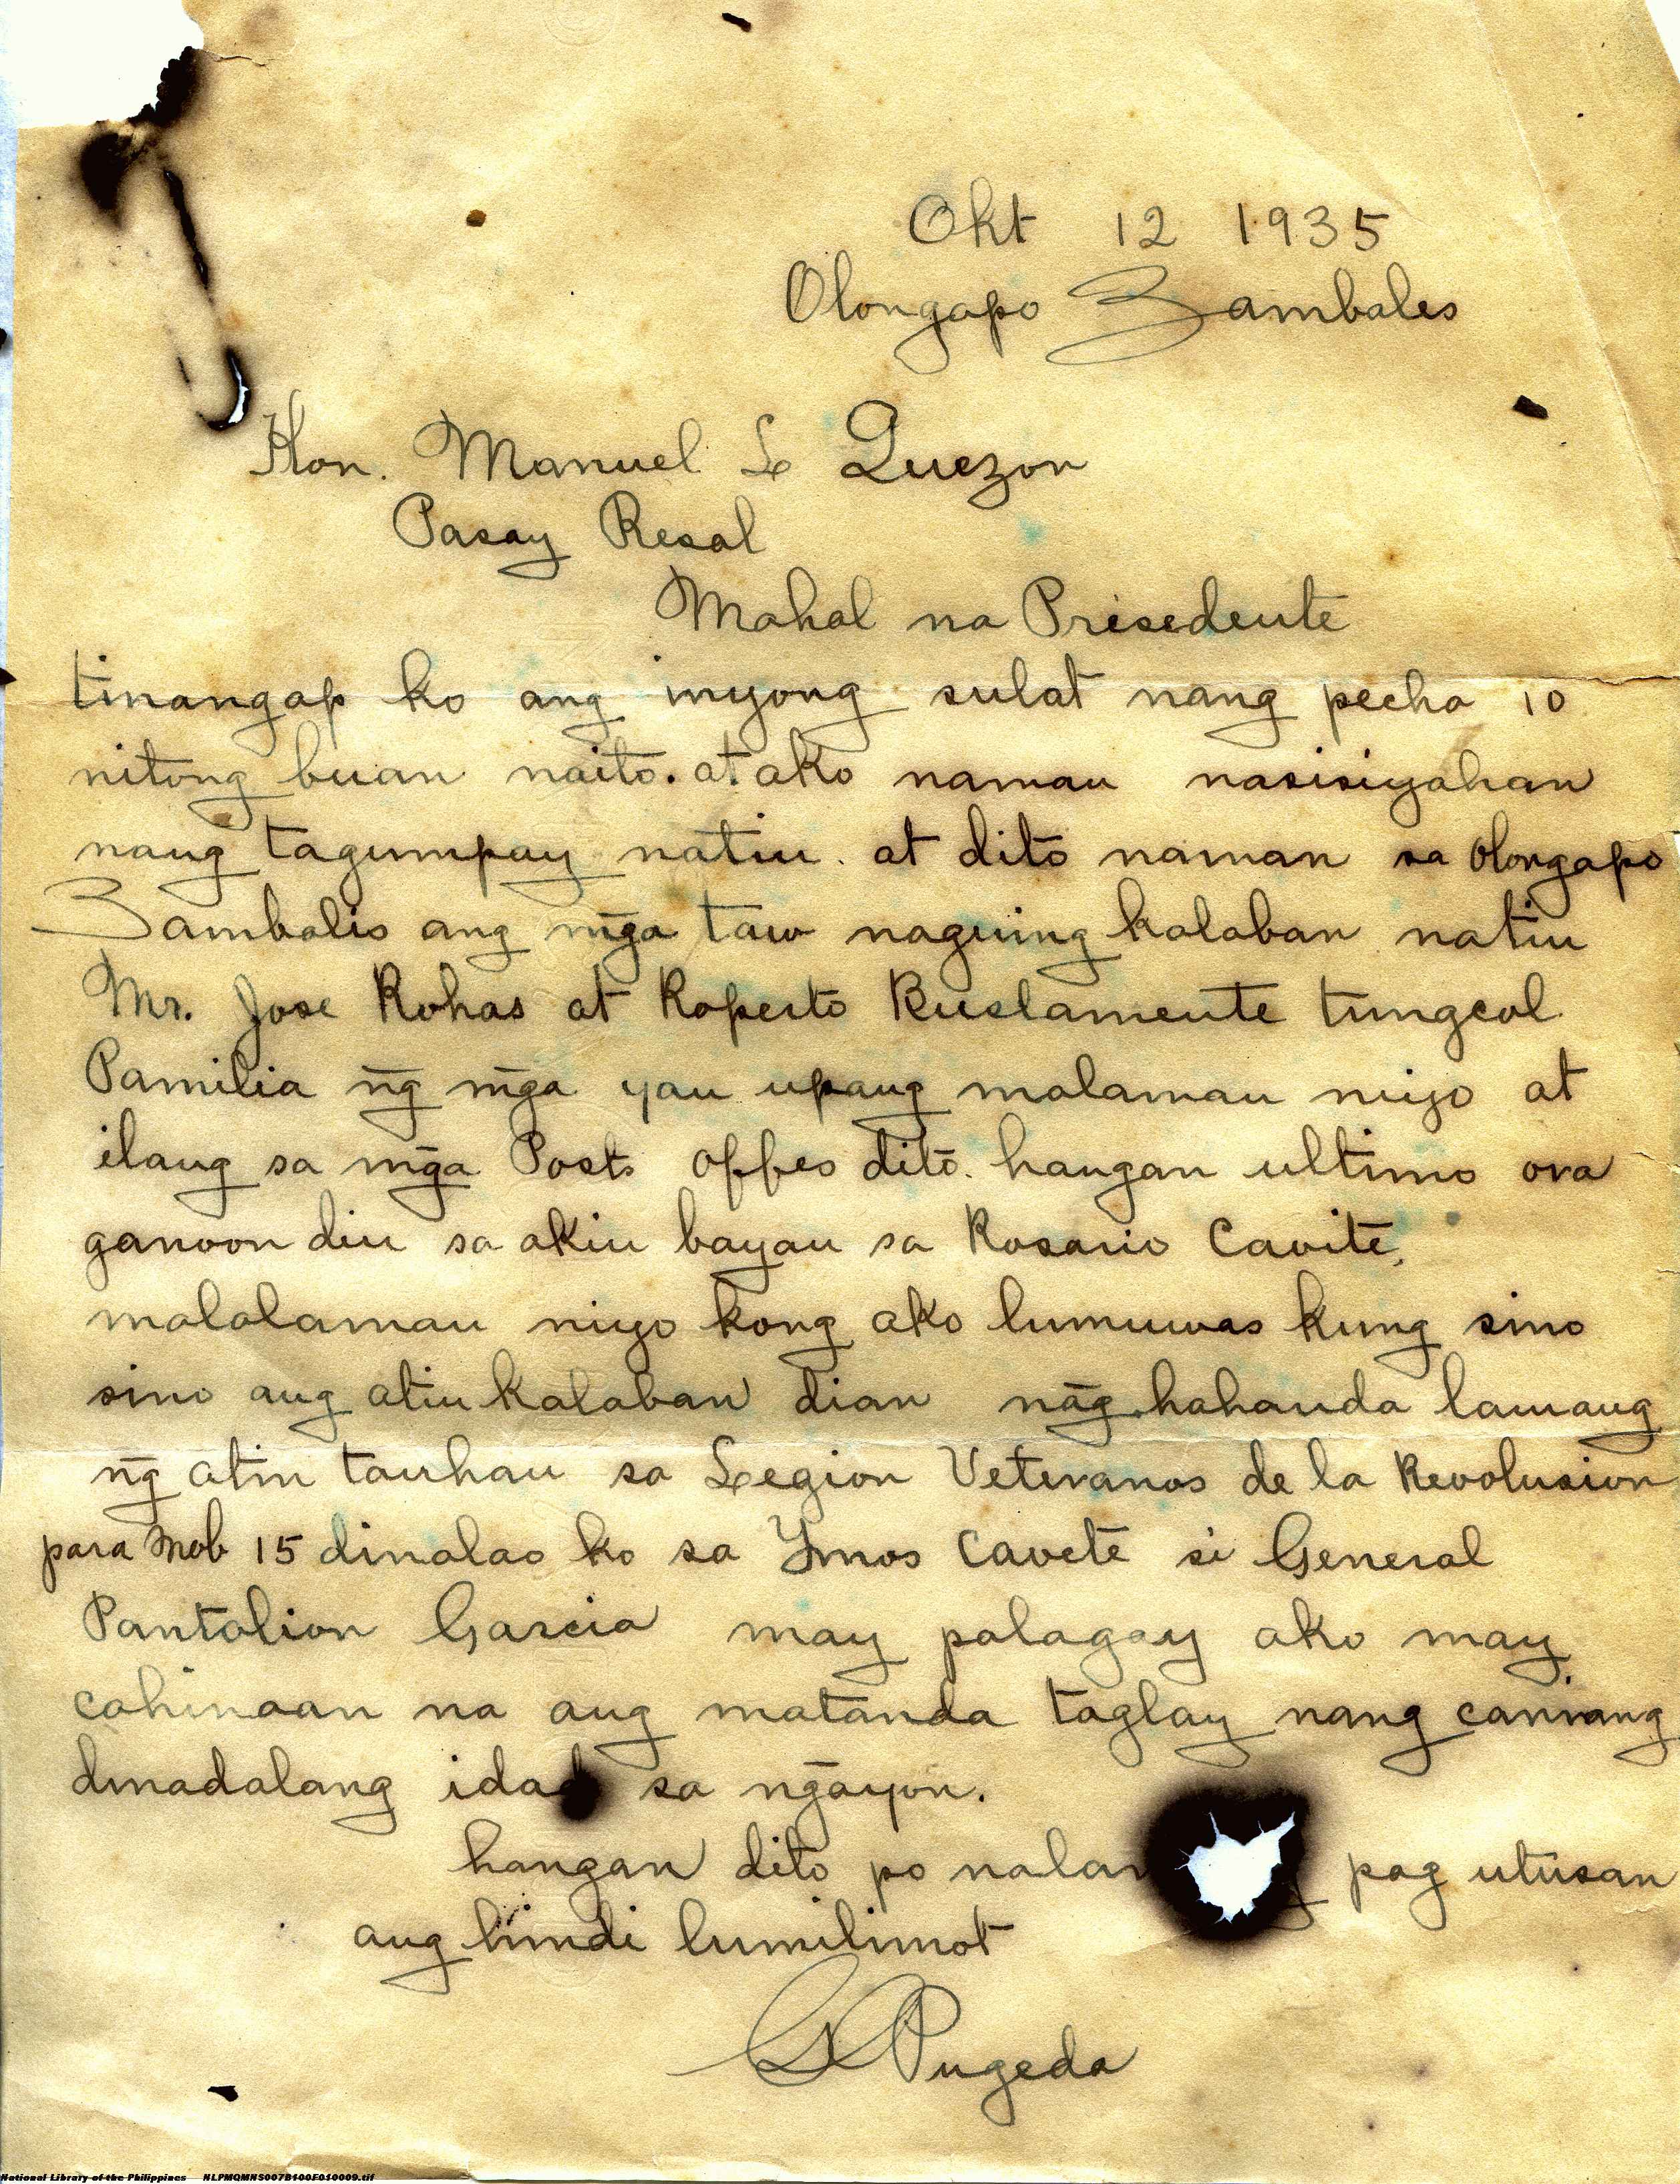 Okt 12 1935
Olongapo Zambales
Hon. Manuel L Quezon
Pasay Resal
Mahal na Presedente
tinangap ko ang inyong sulat nang pecha 10
nitong buan naito. at ako naman nasisiyahan
nang tagumpay natin. at dito naman sa Olongapo
Zambalis ang mga taw naguing kalaban natin
Mr. Jose Rohas at Roperto Buslamente tungcol
Pamilia ng mga yan upang malaman niyo at
ilang sa mga Posts offes dito. hangan ultimo ora
ganoon din sa akin bayan sa Rosario Cavite,
malalaman niyo kong ako lumuwas kung sino
sino ang atin kalaban dian nag hahanda lamang
ng atin tauhan sa Legion Veteranos de la Revolusion
para Nob 15 dinalao ko sa Ymos Cavete si General
Pantalion Garcia may palagay ako may
cahinaan na ang matanda taglay nang caniang
dinadalang idad sa ngayon.
hangan dito po pag utusan
ang hindi lumilimot
G Pugeda
National Library of the Philippines NLPMQMNS007B100F010009.tif